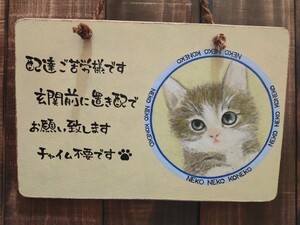 配達ご苦労様です
玄関前に置き配で
お願い致します
チャイム不要です
NEKO NEKO KONEKO
NEKO NEKO KONEKO
NEKO NEKO KONEKO
NEKO NEKO KONEKO